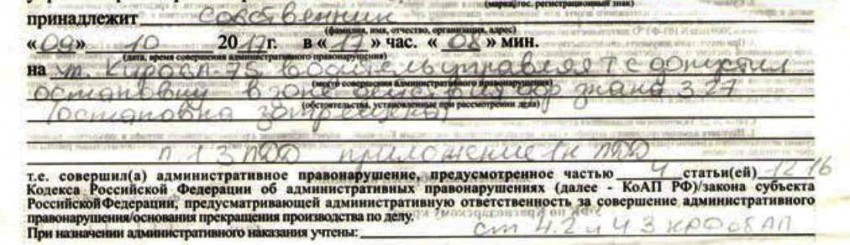 (марка, гос. регистрационный знак)
принадлежит собственник
(фамилия, имя, отчество, организация, адрес)
«09» 10 2017г. в «17» час. «08» мин.
(дата, время совершения административного правонарушения)
на ул. Кирова-75 водитель управляя ТС допустил
(место совершения административного правонарушения)
остановку в зоне действия дор знака 3.27
(обстоятельства, установленные при рассмотрении дела)
(остановка запрещена)
п 1 3 ПДД приложение 1 к ПДД
т.е. совершил(а) административное правонарушение, предусмотренное частью 4 статьи(ей) 12 16
Кодекса Российской Федерации об административных правонарушениях (далее - КоАП РФ)/закона субъекта
Российской Федерации, предусматривающей административную ответственность за совершение административного
правонарушения/основания прекращения производства по делу.
При назначении административного наказания учтены: ст 4.2 и 4 3 КРФобАП